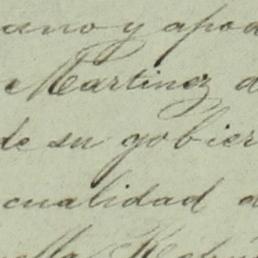 ano y apod
Martinez d
de su gobier
cualidad d